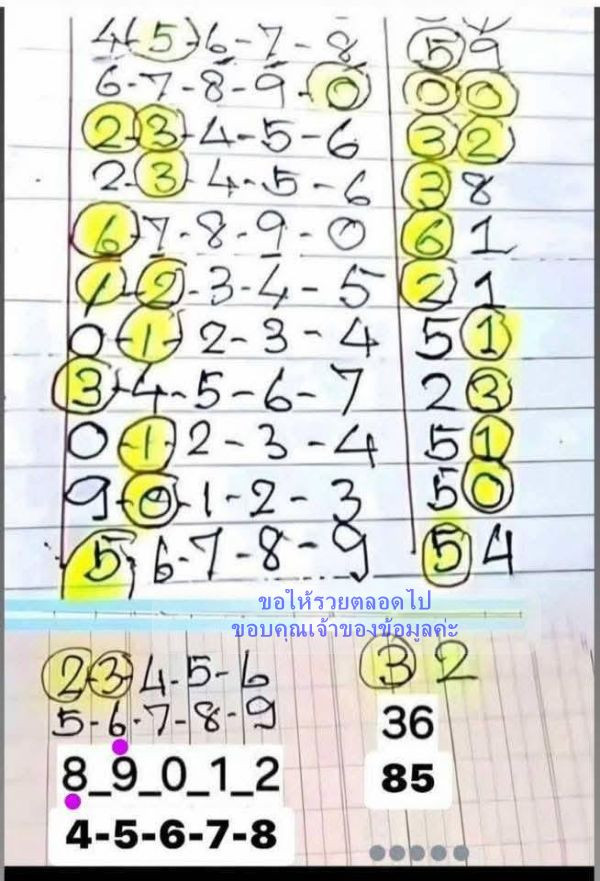 4-5-6-7-8 59
6-7-8-9-0 00
2-3-4-5-6 32
2-3-4-5-6 38
6-7-8-9-0 61
1-2-3-4-5 21
0-1-2-3-4 51
3-4-5-6-7 23
0-1-2-3-4 51
9-0-1-2-3 50
5-6-7-8-9 54
ขอให้รวยตลอดไป
ขอบคุณเจ้าของข้อมูลค่ะ
2-3-4-5-6 32
5-6-7-8-9 36
8_9_0_1_2 85
4-5-6-7-8